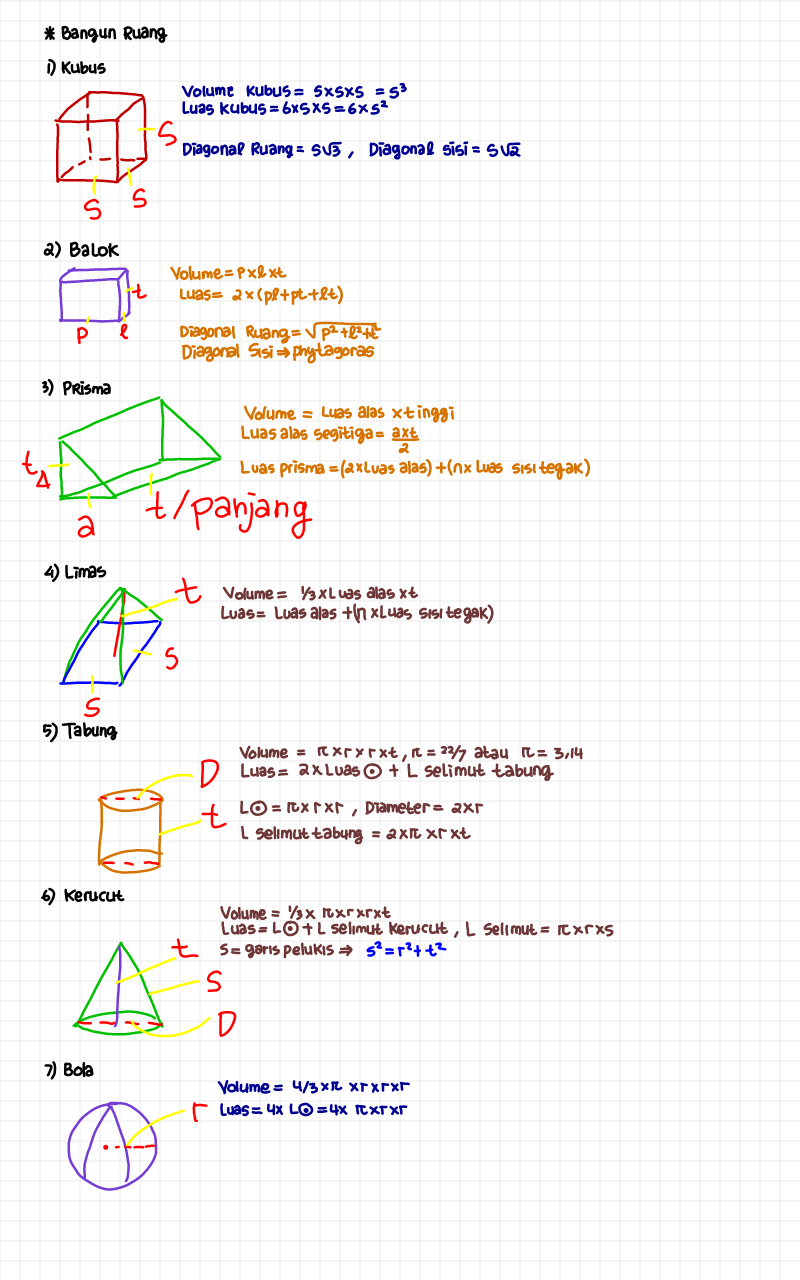 * Bangun Ruang
1) Kubus
Volume Kubus = S×S×S = S³
Luas Kubus = 6×S×S = 6×S²
S
Diagonal Ruang = S√3 , Diagonal sisi = S√2
S
S
2) Balok
Volume = P×l×t
Luas = 2×(pl+pt+lt)
t
P
l
Diagonal Ruang = √P²+l²+t²
Diagonal Sisi ⇒ phytagoras
3) Prisma
Volume = Luas alas × tinggi
Luas alas segitiga = a×t/2
Luas prisma = (2×Luas alas) + (n× luas sisi tegak)
t△
a
t/panjang
4) Limas
t
Volume = 1/3 × Luas alas × t
Luas = Luas alas + (n × Luas sisi tegak)
S
S
5) Tabung
Volume = π × r × r × t , π = 22/7 atau π = 3,14
Luas = 2×Luas ⊙ + L selimut tabung
D
t
L⊙ = π × r × r , Diameter = 2×r
L selimut tabung = 2×π × r × t
6) Kerucut
Volume = 1/3 × π×r×r×t
Luas = L⊙ + L selimut kerucut , L selimut = π×r×s
S = garis pelukis ⇒ s² = r² + t²
t
S
D
7) Bola
Volume = 4/3 × π × r × r × r
Luas = 4× L⊙ = 4× π × r × r
r